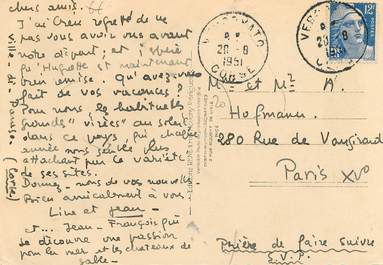 Chers amis.
J'ai bien regretté de ne
pas vous avoir vus avant
notre départ; et j'espère
qu'Huguette est maintenant
bien remise. Qu'avez-vous
fait de vos vacances ?
Pour nous, les habituelles
grandes "virées" au soleil
dans ce pays, qui chaque
année nous semble plus
attachant par la variété
de ses sites.
Donnez-nous de vos nouvelles
Bien amicalement à vous
Line et Jean
et... Jean-François qui
se découvre une passion
pour la mer et les châteaux de
sable -
Ville di
(Corse)
20-8
1951
CORSE
12F
Mr et Mme A.
Hofmann.
280 Rue de Vaugirard
Paris XVe
Prière de faire suivre
S.V.P.